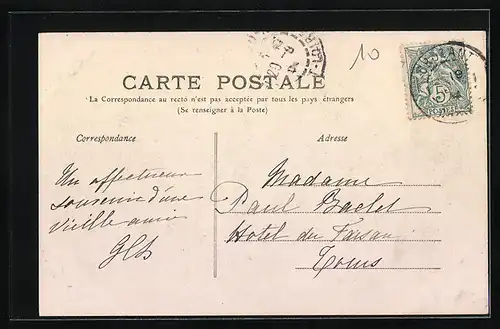 10
CARTE POSTALE
La Correspondance au recto n'est pas acceptée par tous les pays étrangers
(Se renseigner à la Poste)
Correspondance
Adresse
Un affectueux
souvenir d'une
vieille amie
Madame
Paul
Hotel du Faisan
Tours